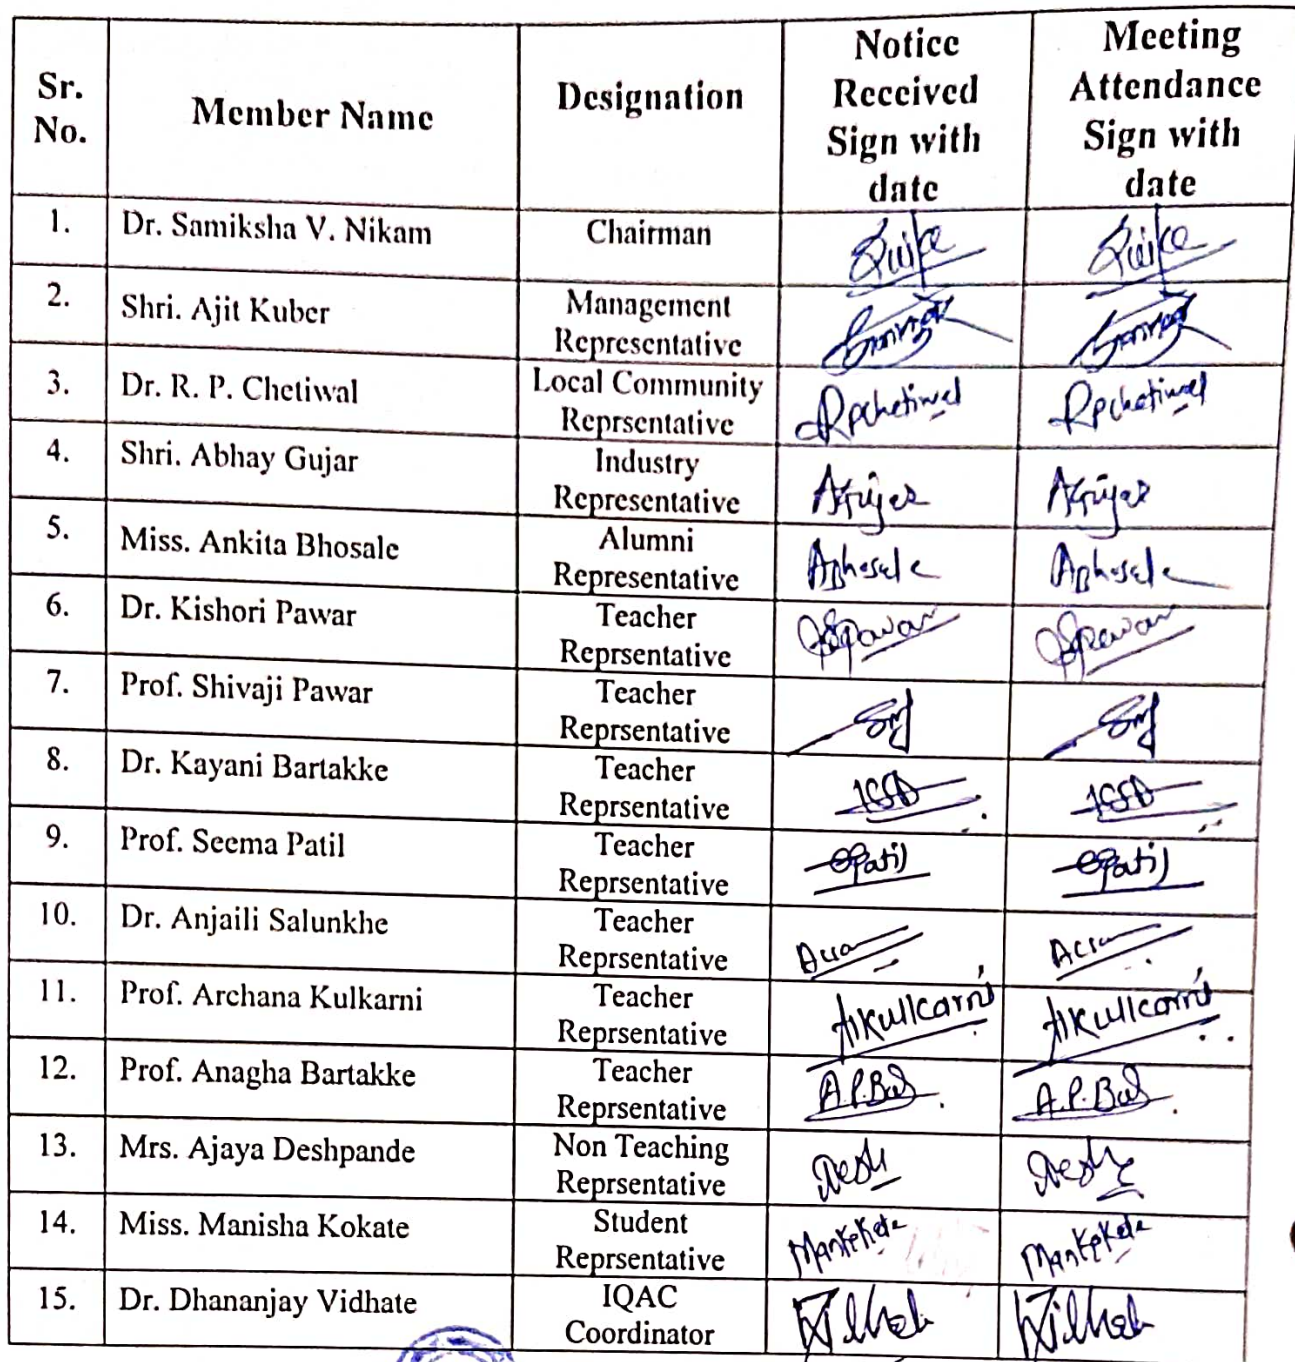 Sr. No. Member Name Designation Notice Received Sign with date Meeting Attendance Sign with date
1. Dr. Samiksha V. Nikam Chairman
2. Shri. Ajit Kuber Management Representative
3. Dr. R. P. Chetiwal Local Community Reprsentative Rpchetiwal Rpchetiwal
4. Shri. Abhay Gujar Industry Representative
5. Miss. Ankita Bhosale Alumni Representative ABhosale ABhosale
6. Dr. Kishori Pawar Teacher Reprsentative
7. Prof. Shivaji Pawar Teacher Reprsentative
8. Dr. Kayani Bartakke Teacher Reprsentative
9. Prof. Seema Patil Teacher Reprsentative
10. Dr. Anjaili Salunkhe Teacher Reprsentative
11. Prof. Archana Kulkarni Teacher Reprsentative AKulkarni AKulkarni
12. Prof. Anagha Bartakke Teacher Reprsentative
13. Mrs. Ajaya Deshpande Non Teaching Reprsentative
14. Miss. Manisha Kokate Student Reprsentative
15. Dr. Dhananjay Vidhate IQAC Coordinator